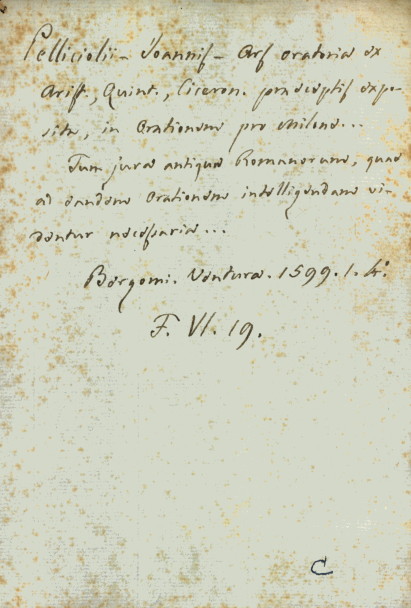 Pelliciolii - Joannis - Ars oratoria ex
Arist., Quint., Ciceron. præceptis expo-
sita, in Orationem pro Milone...
Tum jura antiqua Romanorum, quae
ad eandem Orationem intelligendam vi-
dentur necessaria...
Bergomi. Ventura. 1599. 1. 4.°
F. VI. 19.
C